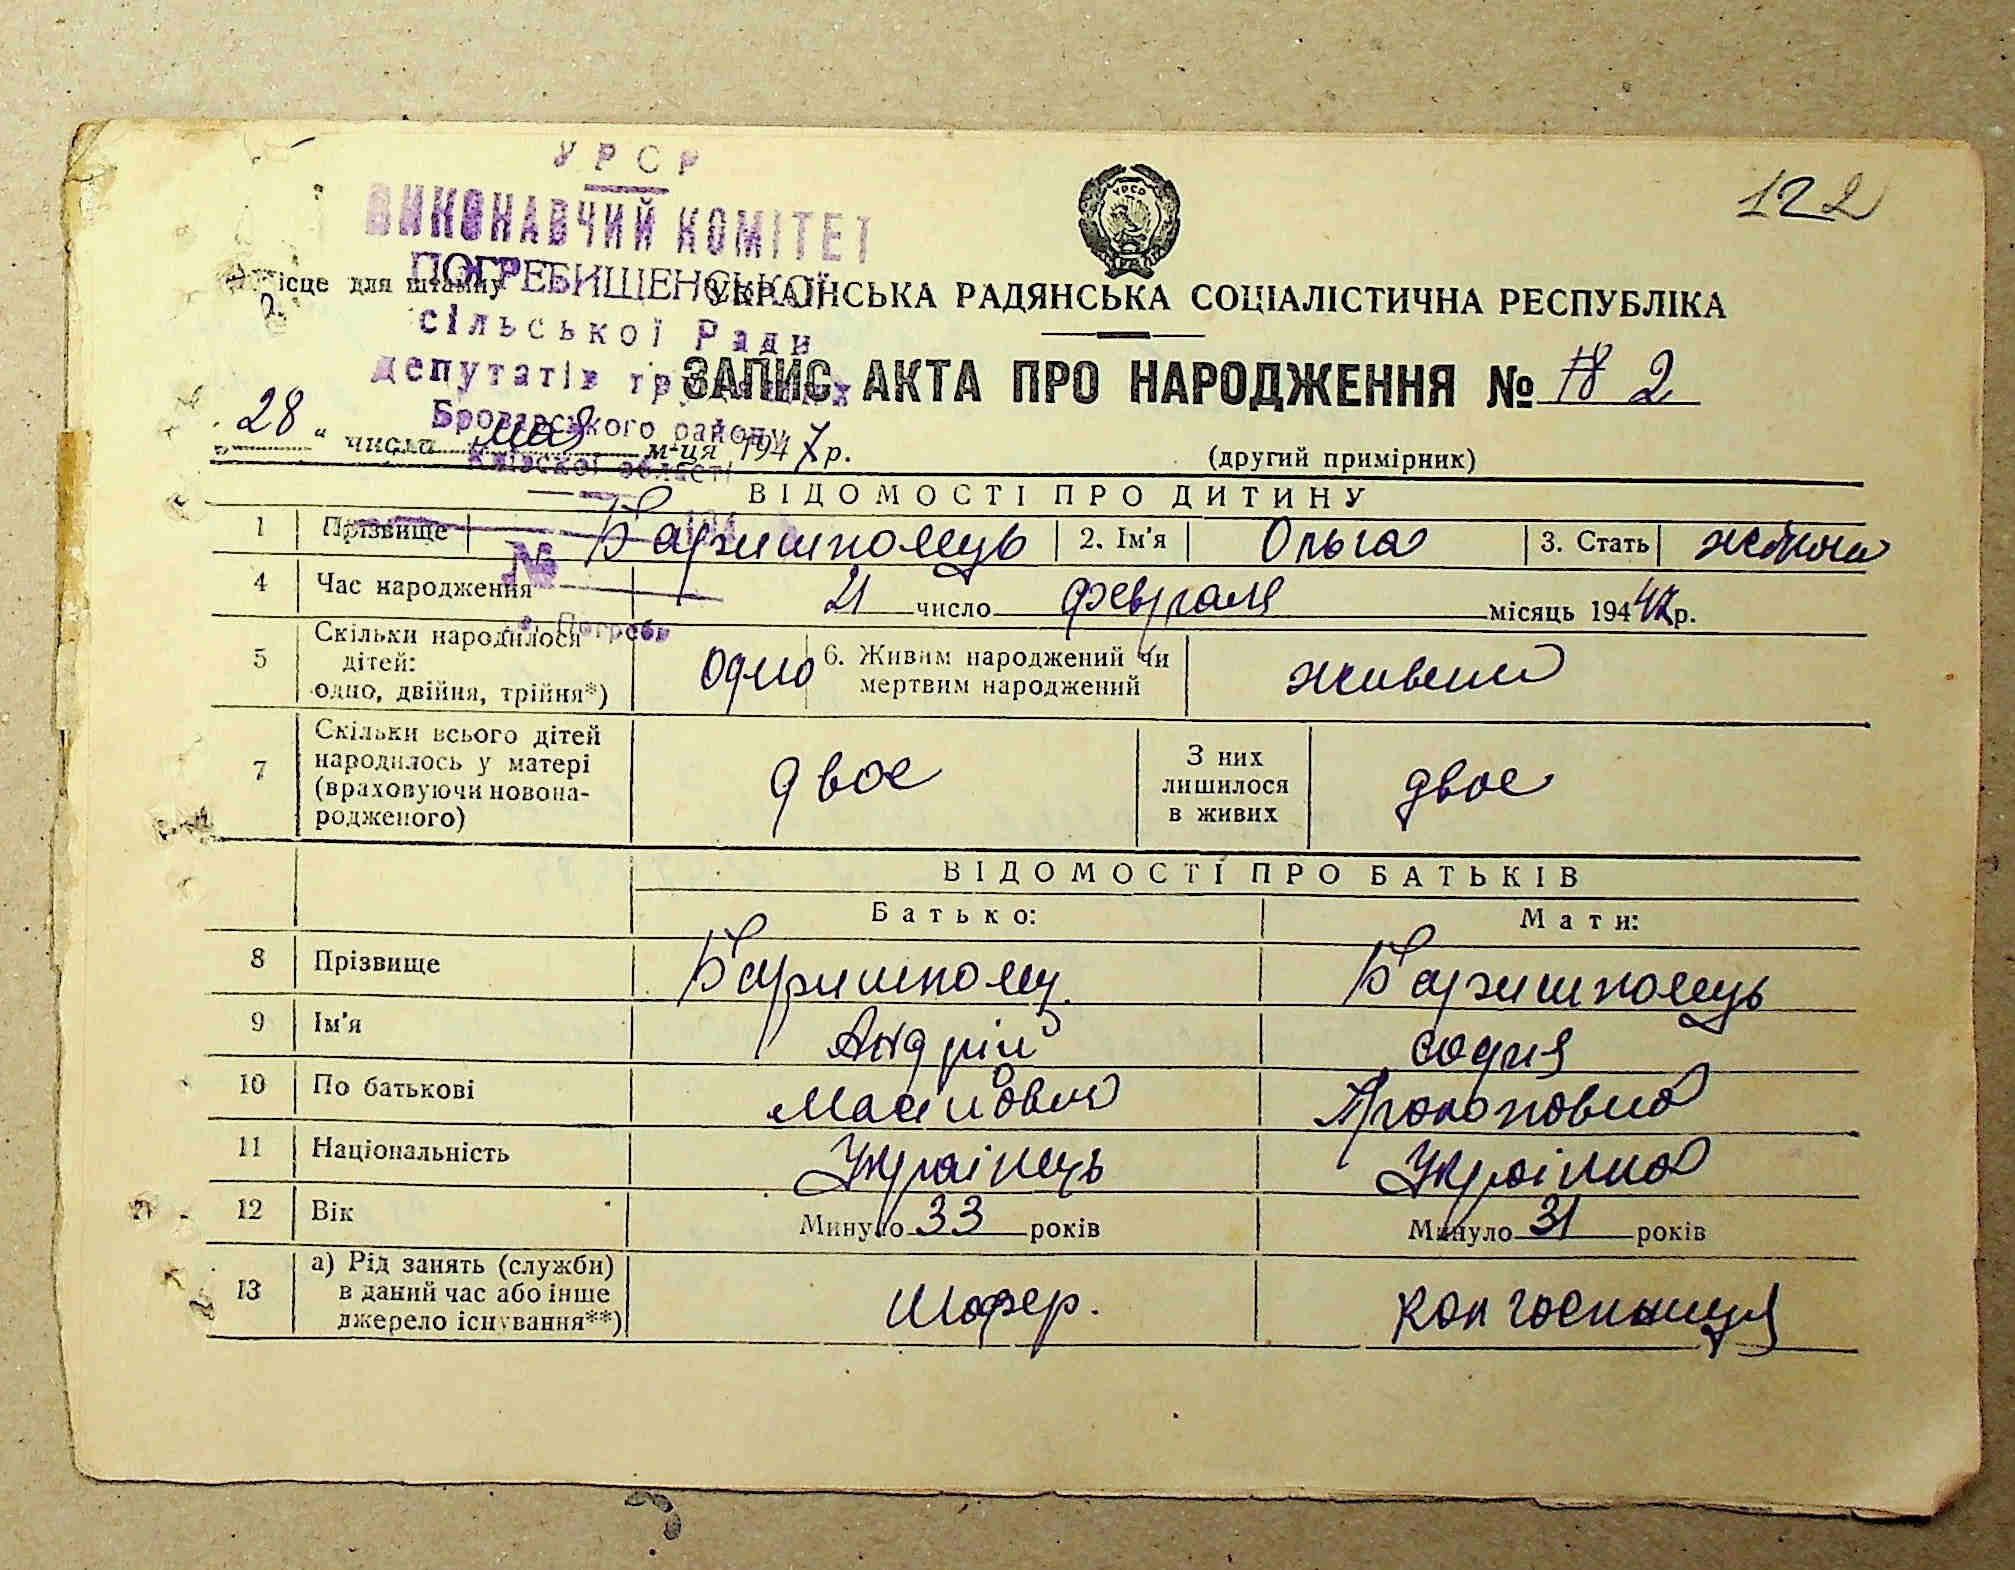 122
УРСР
ВИКОНАВЧИЙ КОМІТЕТ
ПОГРЕБИЩЕНСЬКОЇ
сільської Ради
депутатів
Броварського району
Київської області
№
Місце для штампу
УКРАЇНСЬКА РАДЯНСЬКА СОЦІАЛІСТИЧНА РЕСПУБЛІКА
ЗАПИС АКТА ПРО НАРОДЖЕННЯ № 2
28 " числа мая м-ця 1947 р.
(другий примірник)
ВІДОМОСТІ ПРО ДИТИНУ
1 Прізвище Баришполець 2. Ім'я Ольга 3. Стать
4 Час народження 21 число февраля місяць 1947 р.
5 Скільки народилося дітей: одно, двійня, трійня*) одно 6. Живим народжений чи мертвим народжений живим
7 Скільки всього дітей народилось у матері (враховуючи новонародженого) двое З них лишилося в живих двое
ВІДОМОСТІ ПРО БАТЬКІВ
Батько: Мати:
8 Прізвище Баришполец. Баришполець
9 Ім'я Андрій София
10 По батькові Прокоповна
11 Національність Українець Українка
12 Вік Минуло 33 років Минуло 31 років
13 а) Рід занять (служби) в даний час або інше джерело існування**) Шофер. колгоспниця